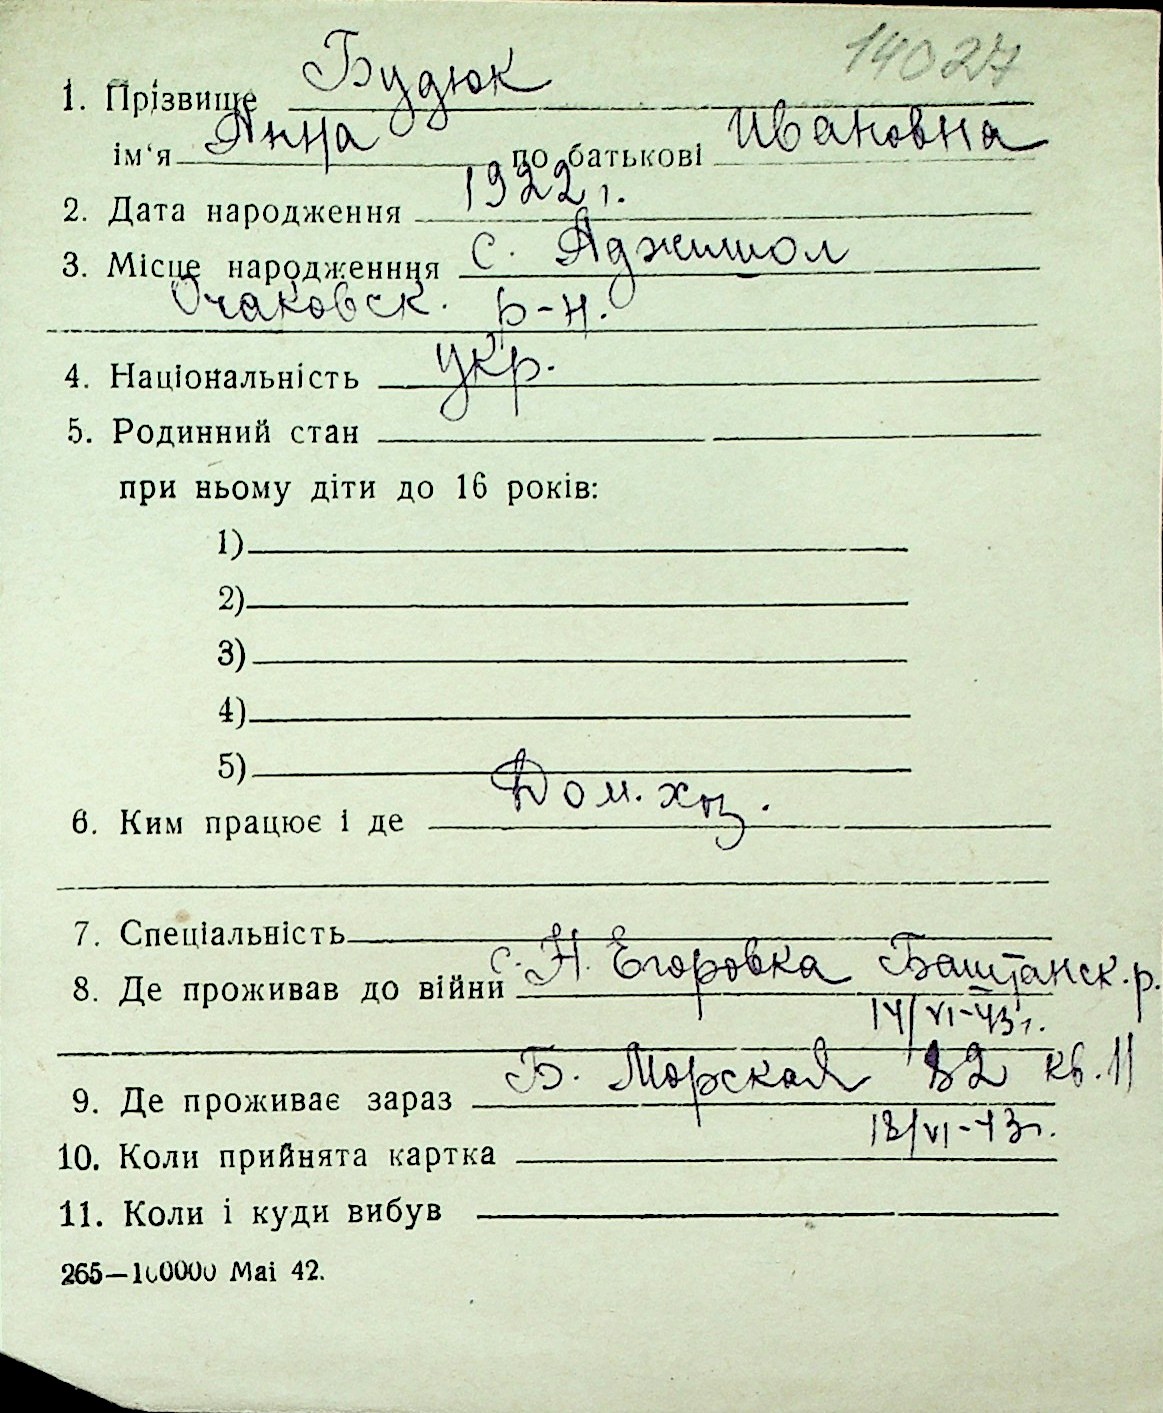 14027
1. Прізвище Будюк
ім'я Анна по батькові Ивановна
2. Дата народження 1922 г.
3. Місце народженння с. Аджишол
Очаковск. р-н.
4. Національність укр.
5. Родинний стан
при ньому діти до 16 років:
1)
2)
3)
4)
5)
6. Ким працює і де Дом. хоз.
7. Спеціальність
8. Де проживав до війни с. Н. Егоровка Баштанск. р.
14/VI-43 г.
9. Де проживає зараз Б. Морская 82 кв. 11
18/VI-43 г.
10. Коли прийнята картка
11. Коли і куди вибув
265—100000 Маі 42.